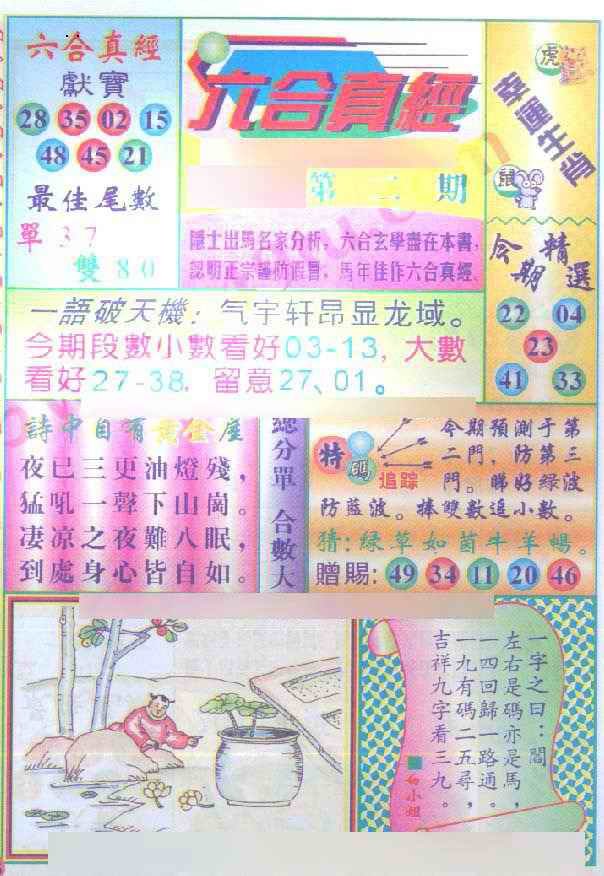 六合真經
獻寶
28 35 02 15
48 45 21
最佳尾數
單 37
雙 80
六合真經
第二期
隱士出馬名家分析，六合玄學盡在本書，
認明正宗謹防假冒，馬年佳作六合真經。
虎
幸運生肖
鼠
今期精選
22 04
23
41 33
一語破天機：气宇轩昂显龙域。
今期段數小數看好03-13，大數
看好27-38，留意27、01。
詩中自有黃金屋
夜已三更油燈殘，
猛吼一聲下山崗。
凄凉之夜難入眠，
到處身心皆自如。
總分單 合數大
特碼追踪
今期預測于第
二門，防第三
門。睇好綠波
防藍波。捧雙數追小數。
猜：綠草如茵牛羊暢。
贈賜：49 34 11 20 46
一字之曰：閶
左右是碼亦是馬，
一四回歸一路通。
一九有碼二五尋，
吉祥九字看三九。